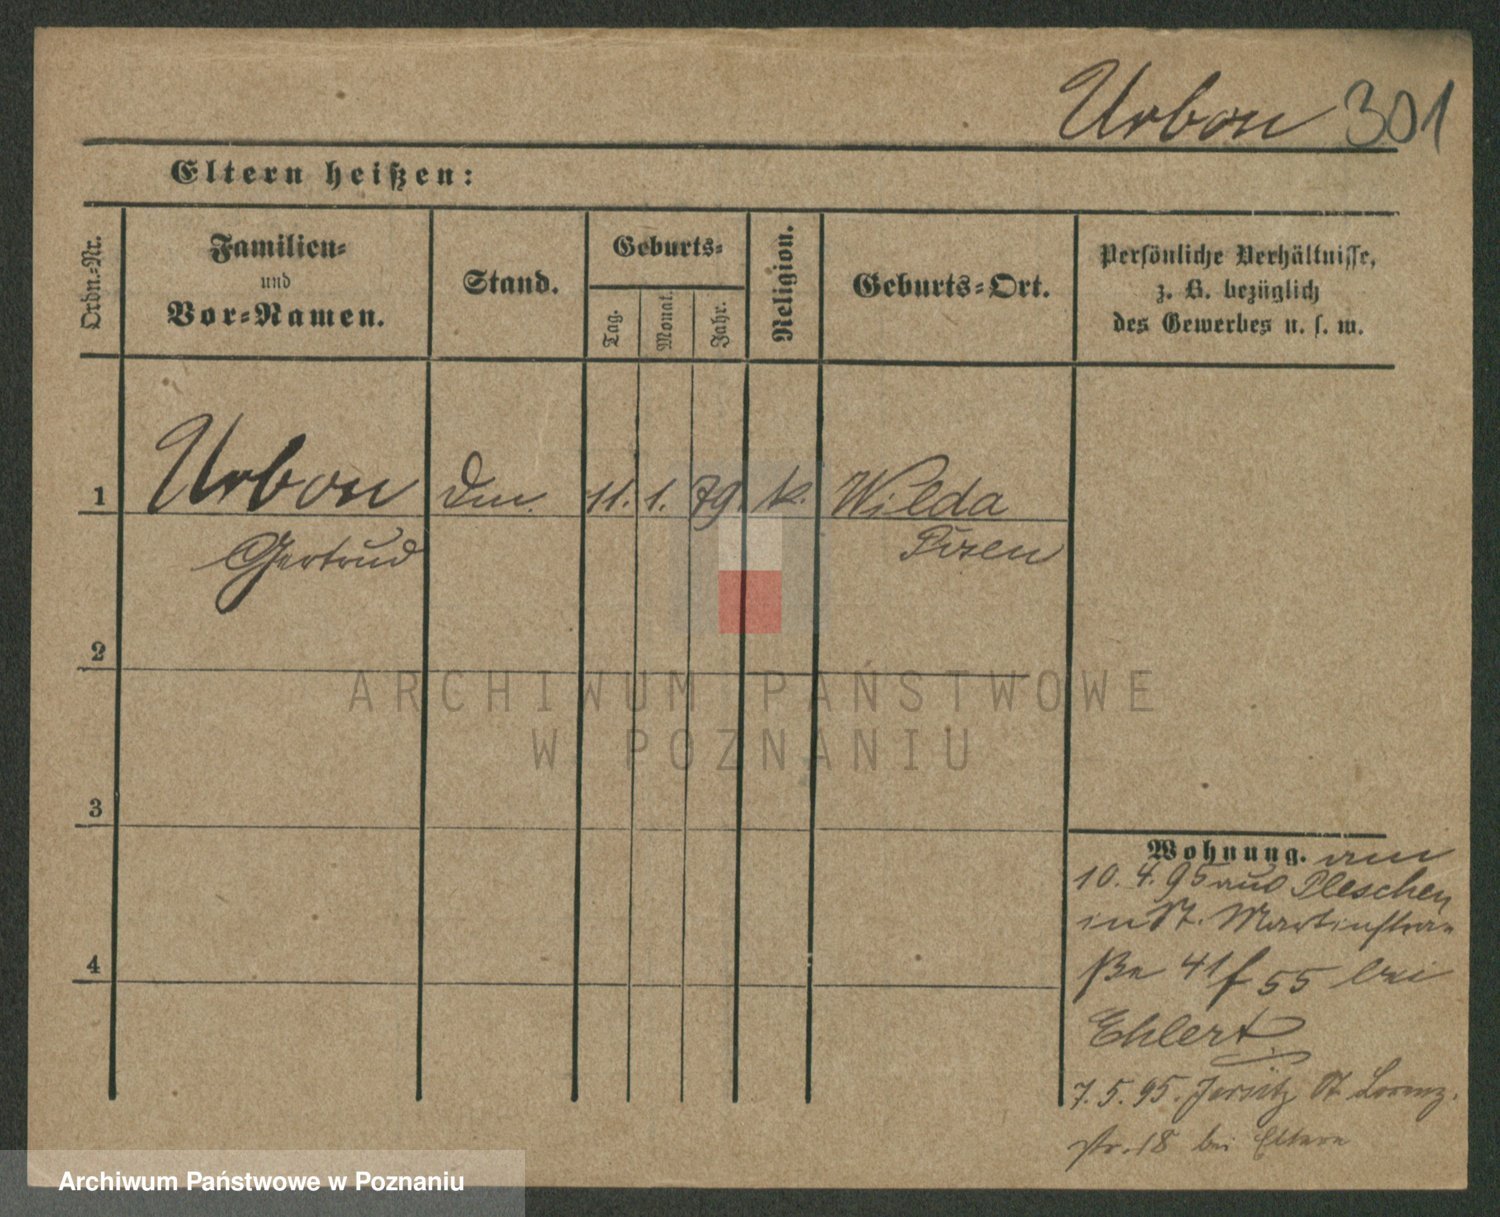 Urbon 301
Eltern heißen:
Ordn.-Nr.
Familien-
und
Vor-Namen.
Stand.
Geburts-
Tag.
Monat.
Jahr.
Religion.
Geburts-Ort.
Persönliche Verhältnisse,
z. B. bezüglich
des Gewerbes u. s. w.
1 Urbon 11. 1. 79. k. Wilda
Gertrud Posen
2
3
4
Wohnung. am
10. 4. 95 aus Pleschen
in St. Martinstra-
ße 41 f 55 bei
Ehlert
7. 5. 95. Jersitz St. Lorenz.
str. 18 bei Eltern
ARCHIWUM PAŃSTWOWE
W POZNANIU
Archiwum Państwowe w Poznaniu